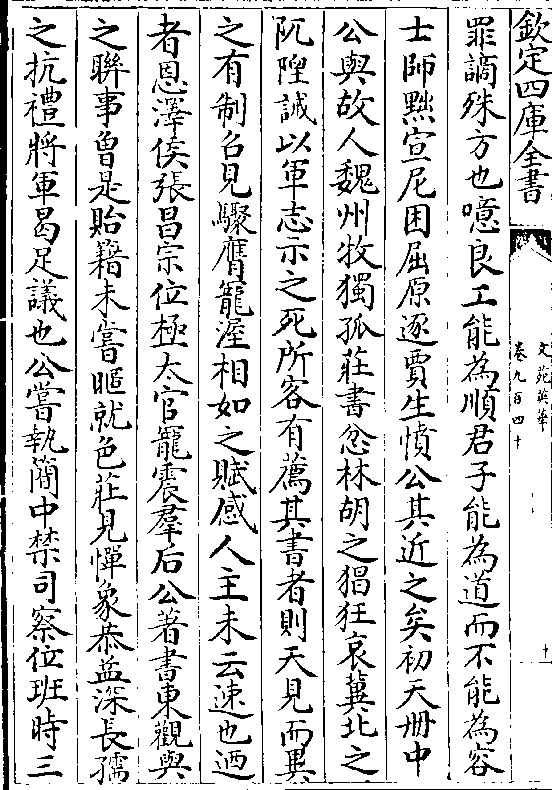 欽定四庫全書
文苑英華
卷九百四十
十
罪謫殊方也噫良工能為順君子能為道而不能為容
士師黜宣尼困屈原逐賈生憤公其近之矣初天册中
公與故人魏州牧獨孤莊書忿林胡之猖狂哀冀北之
阢隉誠以軍志示之死所客有薦其書者則天見而異
之有制召見驟膺寵渥相如之賦感人主未云速也迺
者恩澤侯張昌宗位極太官寵震羣后公著書東觀與
之聯事曾是貽籍未嘗暱就色莊見憚象恭益深長孺
之抗禮將軍曷足議也公嘗執簡中禁司察位班時三